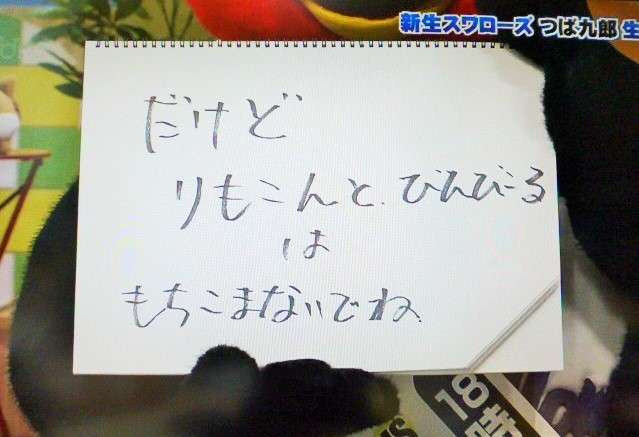 新生スワローズ つば九郎 生
だけど
りもこんと、びんびーる
は
もちこまないでね。
18時